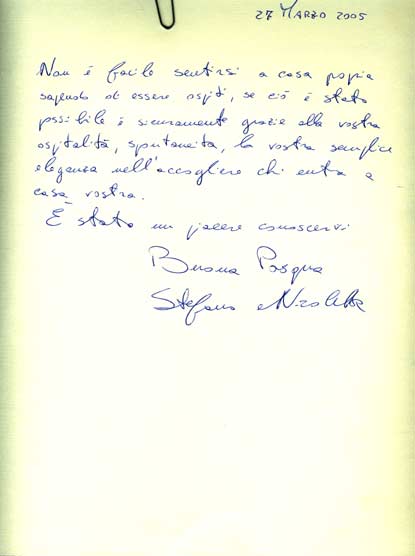 27 MARZO 2005
Non è facile sentirsi a casa propria
sapendo di essere ospiti, se ciò è stato
possibile è sicuramente grazie alla vostra
ospitalità, spontaneità, la vostra semplice
eleganza nell'accogliere chi entra a
casa vostra.
È stato un piacere conoscervi
Buona Pasqua
Stefano e Nicoletta